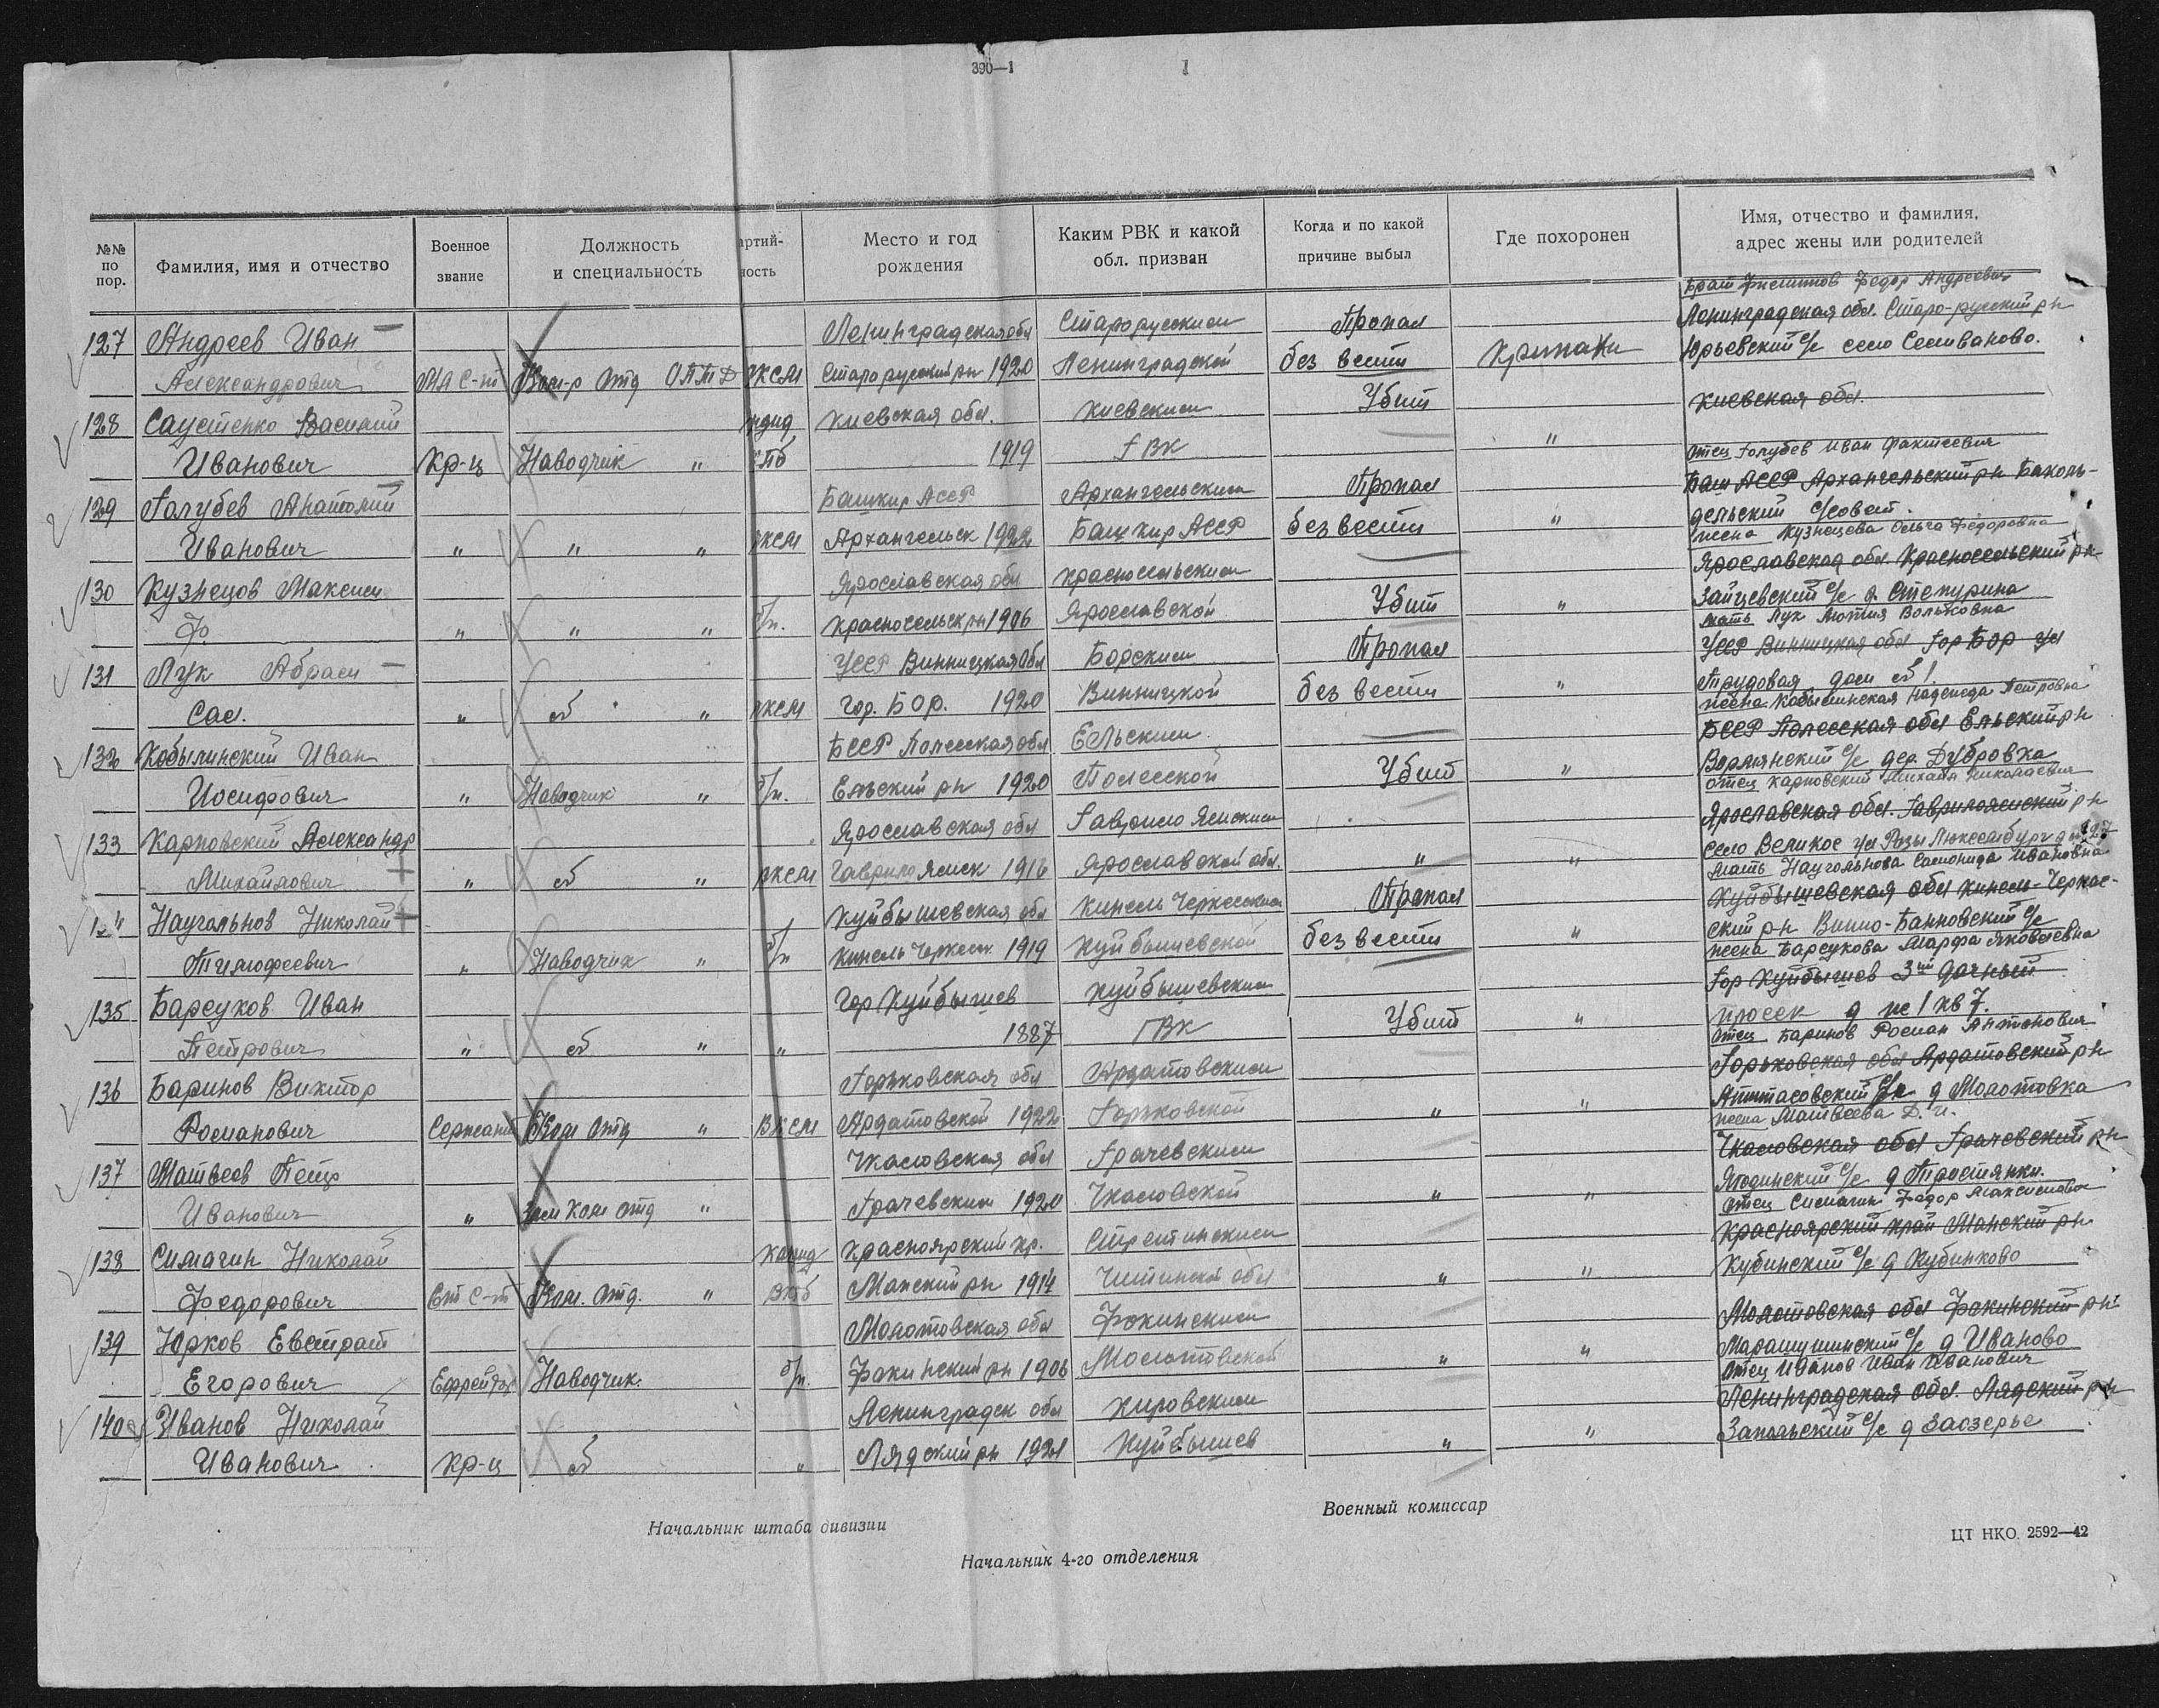 390—1
№№ по пор. Фамилия, имя и отчество Военное звание Должность и специальность артий- ность Место и год рождения Каким РВК и какой обл. призван Когда и по какой причине выбыл Где похоронен Имя, отчество и фамилия, адрес жены или родителей
Брат Филиппов Федор Андреевич
127 Андреев Иван Ленинградская обл Старорусским Пропал Ленинградская обл. Старо-русский рн
Александрович Мл с-т Ком-р отд ОПТД ЛКСМ Старорусский рн 1920 Ленинградской без вести Юрьевский с/с село Селиваново.
128 Саустенко Василий канд Киевская обл. Киевским Убит Киевская обл.
Иванович Кр-ц Наводчик " 1919 ГВК "
Отец Голубев Иван
129 Голубев Анатолий Башкир АССР Архангельским Пропал Баш АССР Архангельский рн Баколь-
Иванович " " " ЛКСМ Архангельск 1922 Башкир АССР без вести " дельский с/совет.
жена Кузнецова Ольга Федоровна
130 Кузнецов Максим Ярославская обл Красносельским Ярославская обл. Красносельский рн
Ф " " " б/п. Красносельск рн 1906 Ярославской Убит " Зайцевский с/с д. Степурина
мать Лук Мотия Вольковна
131 Лук Абрам УССР Винницкая обл Борским Пропал УССР Винницкая обл гор Бор ул
Сам. " об " ЛКСМ гор. Бор. 1920 Винницкой без вести " Трудовая дом 1.
жена Кобылинская Надежда Петровна
132 Кобылинский Иван БССР Полесская обл Ельским БССР Полесская обл Ельский рн
Иосифович " Наводчик " б/п. Ельский рн 1920 Полесской Убит " с/с дер. Дубровка
Отец Карповский Михаил Николаевич
133 Карповский Александр Ярославская обл Гаврило Ямским Ярославская обл. Гаврилоямский рн
Михайлович " об " ЛКСМ Гаврило Ямск 1916 Ярославской обл. " " село Великое ул Розы Люксембург д 127
мать Наугольнова Иовановна
134 Наугольнов Николай Куйбышевская обл Кинель Черкесским Пропал Куйбышевская обл Кинель-Черкес-
Тимофеевич " Наводчик " б/п Кинель Черкесск 1919 Куйбышевской без вести " ский рн Винно-Банновский с/с
жена Барсукова Марфа Яковлевна
135 Барсуков Иван Гор Куйбышев Куйбышевским Гор Куйбышев 3ий дачный
Петрович " об " " 1887 ГВК Убит " просек д № 1 кв 7.
Отец Баринов Роман Антонович
136 Баринов Виктор Горьковская обл Ардатовским Горьковская обл Ардатовский рн
Романович Сержант Ком отд " ВЛКСМ Ардатовской 1922 Горьковской " " с/с д Молотовка
жена Матвеева Д. И.
137 Матвеев Петр Чкаловская обл Грачевским Чкаловская обл Грачевский рн
Иванович " Зам Ком отд " Грачевским 1920 Чкаловской " " с/с д Простянки.
Отец Симагин Федор Максимович
138 Симагин Николай канд Красноярский кр. Сретинским Красноярский край Манский рн
Федорович Ст с-т Ком. отд. " ВКПб Манский рн 1914 Читинской обл " " Кубинский с/с д Кубинково
139 Юрков Евстрат Молотовская обл Фокинским Молотовская обл Фокинский рн
Егорович Ефрейтор Наводчик. б/п. Фокинский рн 1906 Молотовской " " Марашушинский с/с д Иваново
Отец Иванов Иван Иванович
140 Иванов Николай Ленинградск обл Кировским Ленинградская обл. Лядский рн
Иванович Кр-ц об " Лядский рн 1921 Куйбышев " " Запольский с/с д Заозерье
Начальник штаба дивизии
Военный комиссар
Начальник 4-го отделения
ЦТ НКО. 2592—42